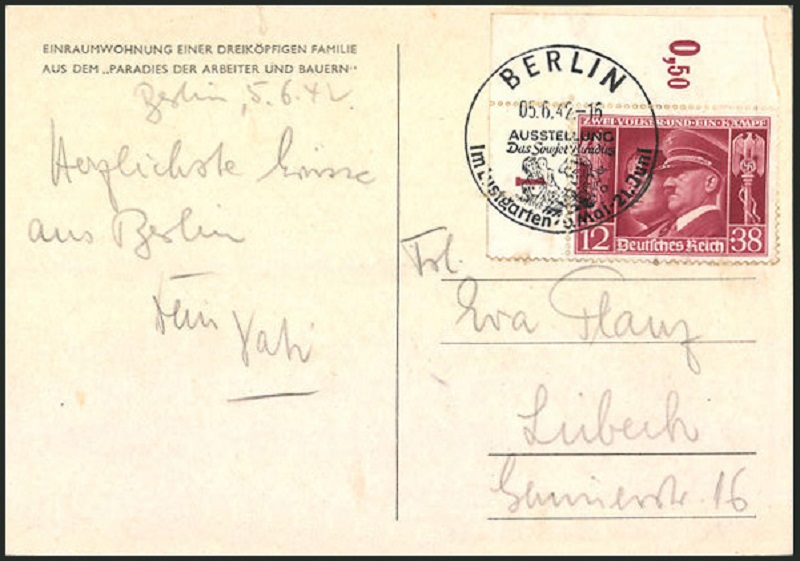 EINRAUMWOHNUNG EINER DREIKÖPFIGEN FAMILIE
AUS DEM „PARADIES DER ARBEITER UND BAUERN“
Berlin, 5.6.42.
Herzlichste Grüsse
aus Berlin
Dein Vati
0,50
BERLIN
05.6.42-16
AUSSTELLUNG
Das Sowjet Paradies
Im Lustgarten Mai-21. Juni
ZWEI VÖLKER UND EIN KAMPF
12 Deutsches Reich 38
Frl.
Eva Planz
Lübeck
16